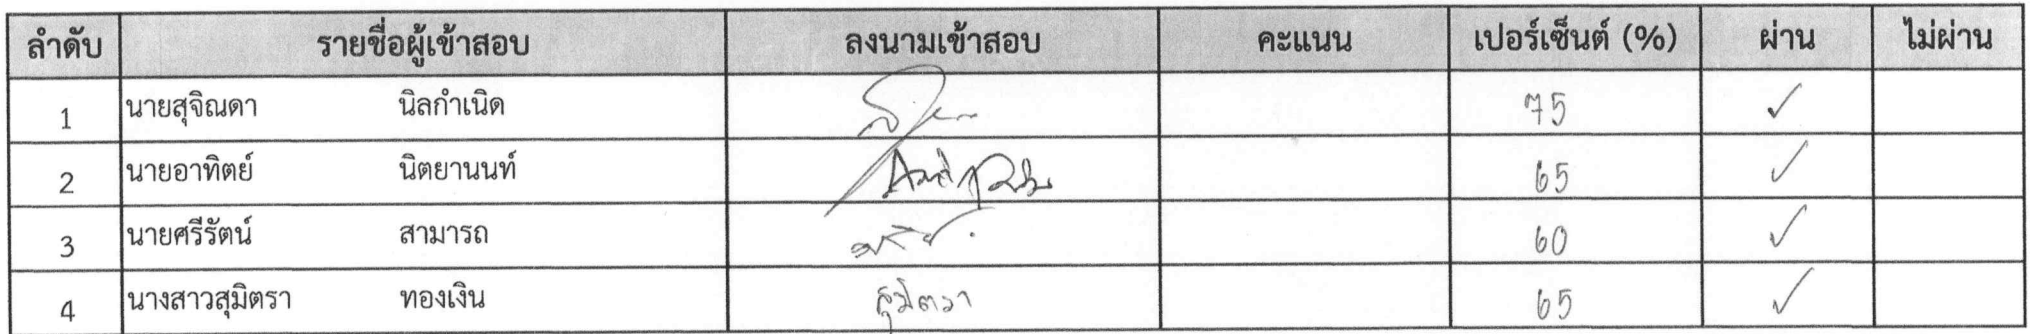 ลำดับ รายชื่อผู้เข้าสอบ ลงนามเข้าสอบ คะแนน เปอร์เซ็นต์ (%) ผ่าน ไม่ผ่าน
1 นายสุจิณดา นิลกำเนิด 75 ✓
2 นายอาทิตย์ นิตยานนท์ 65 ✓
3 นายศรีรัตน์ สามารถ 60 ✓
4 นางสาวสุมิตรา ทองเงิน สุมิตรา 65 ✓